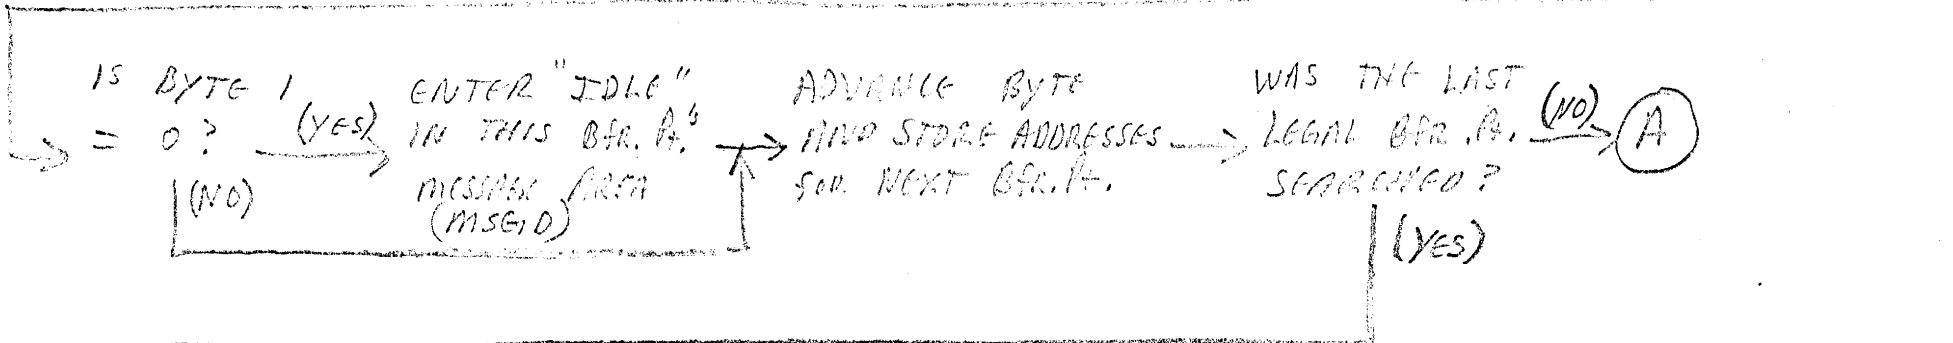 IS BYTE 1
= 0?
(YES)
(NO)
ENTER "IDLE"
IN THIS BFR. Pt.'s
MESSAGE AREA
(MSG,D)
ADVANCE BYTE
AND STORE ADDRESSES
FOR NEXT BFR. Pt.
WAS THE LAST
LEGAL BFR. Pt.
SEARCHED?
(NO)
A
(YES)